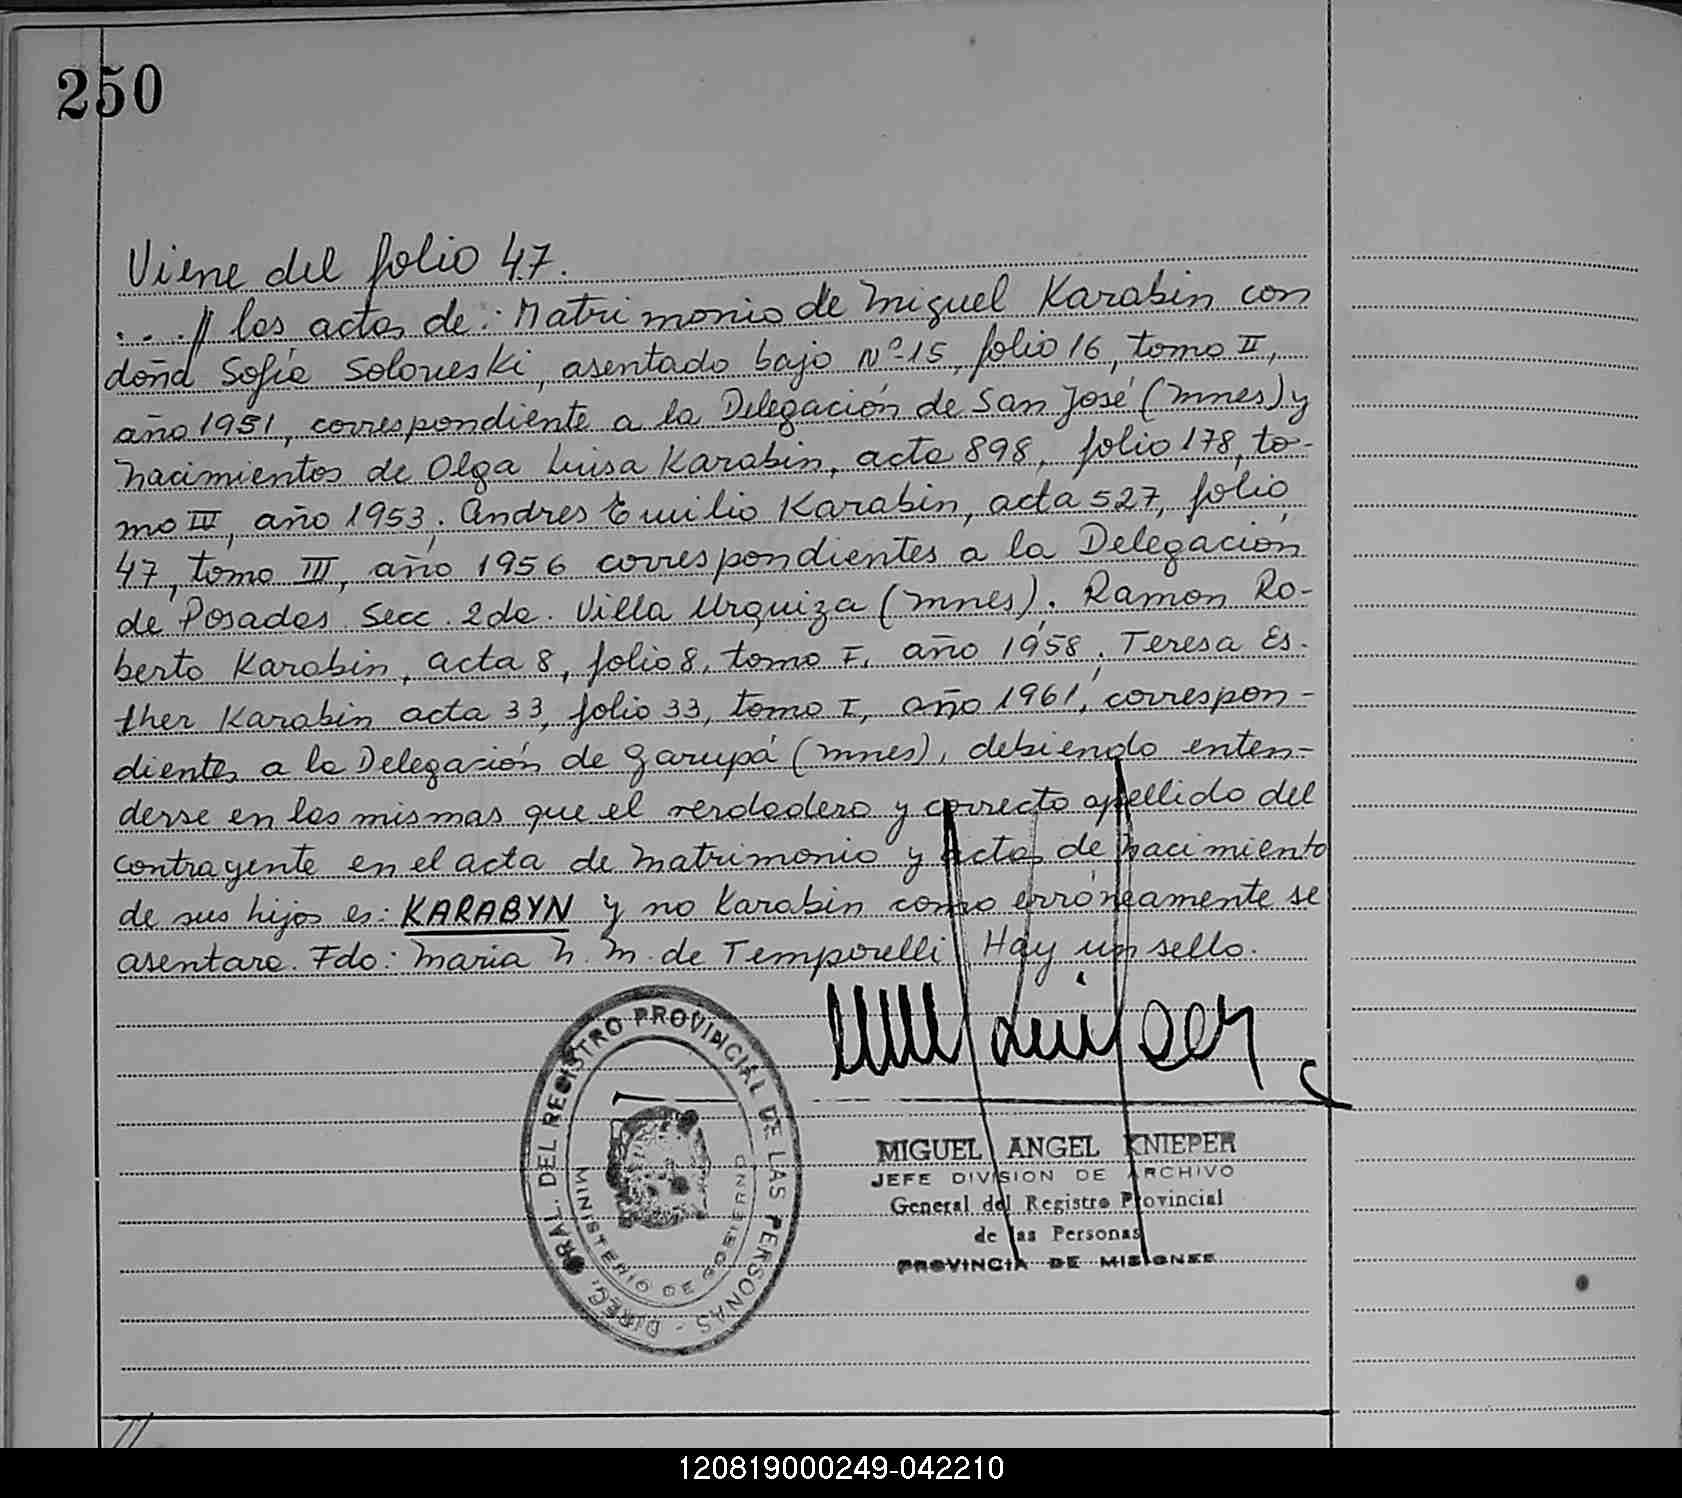 250
Viene del folio 47.
...// las actas de: Matrimonio de Miguel Karabin con
doña Sofía Soloveski, asentado bajo Nº 15, folio 16, tomo II,
año 1951, correspondiente a la Delegación de San José (Mnes) y
nacimientos de Olga Luisa Karabin, acta 898, folio 178, to-
mo IV, año 1953; Andres Emilio Karabin, acta 527, folio
47, tomo III, año 1956 correspondientes a la Delegación
de Posadas Secc. 2da. Villa Urquiza (Mnes); Ramon Ro-
berto Karabin, acta 8, folio 8, tomo I, año 1958; Teresa Es-
ther Karabin acta 33, folio 33, tomo I, año 1961, correspon-
dientes a la Delegación de Garupá (Mnes), debiendo enten-
derse en las mismas que el verdadero y correcto apellido del
contrayente en el acta de matrimonio y actas de nacimiento
de sus hijos es: KARABYN y no Karabin como erróneamente se
asentara. Fdo: Maria N. M. de Temporelli Hay un sello.
DIREC. GRAL. DEL REGISTRO PROVINCIAL DE LAS PERSONAS -
MINISTERIO DE GOBIERNO
MIGUEL ANGEL KNIEPER
JEFE DIVISION DE ARCHIVO
General del Registro Provincial
de las Personas
PROVINCIA DE MISIONES
120819000249-042210